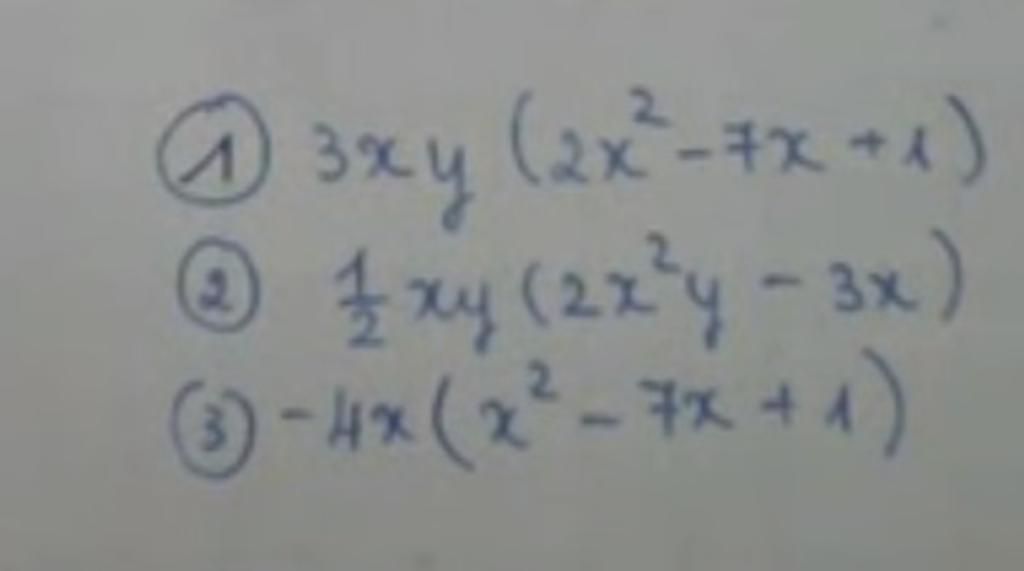 ① 3xy (2x² - 7x + 1)
② 1/2 xy (2x²y - 3x)
③ -4x (x² - 7x + 1)